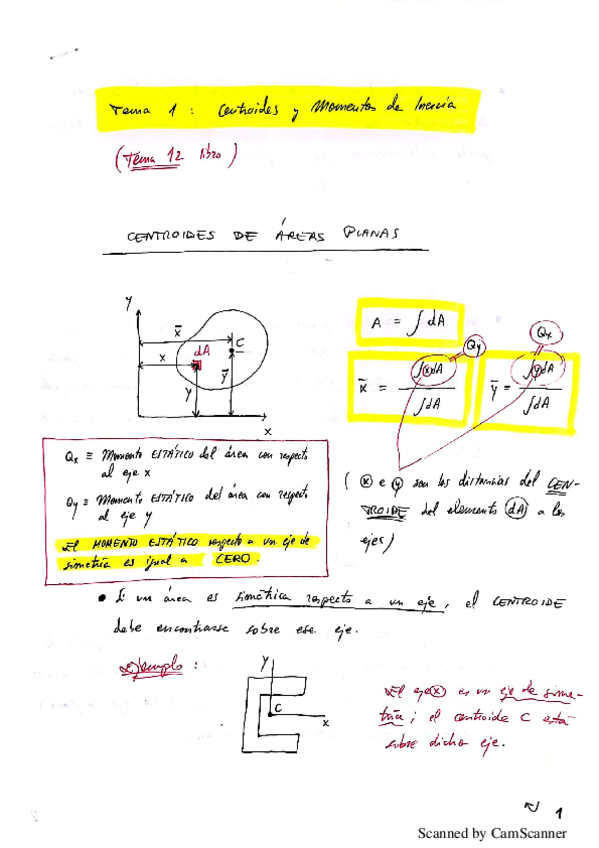 Tema 1 : Centroides y Momentos de Inercia
(Tema 12 libro)
CENTROIDES DE ÁREAS PLANAS
y
x̄
C
dA
x
ȳ
y
x
A = ∫ dA
Qy
Qx
x̄ = ∫xdA / ∫dA
ȳ = ∫ydA / ∫dA
Qx ≡ Momento ESTÁTICO del área con respecto
al eje x
Qy ≡ Momento ESTÁTICO del área con respecto
al eje y
El MOMENTO ESTÁTICO respecto a un eje de
simetría es igual a CERO.
(x e y son las distancias del CEN-
TROIDE del elemento (dA) a los
ejes)
• Si un área es simétrica respecto a un eje, el CENTROIDE
debe encontrarse sobre ese eje.
Ejemplo :
y
C
x
El eje x es un eje de sime-
tría ; el centroide C está
sobre dicho eje.
1
Scanned by CamScanner